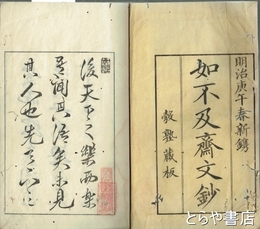 明治庚午春新鐫
如不及齋文鈔
毅塾藏板
後天下之樂而樂
吾聞其語矣未見
其人也先
とらや書店